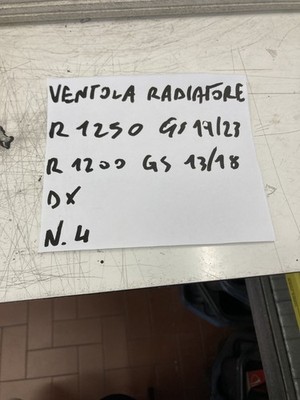 VENTOLA RADIATORE
R 1250 GS 19/23
R 1200 GS 13/18
DX
N. 4